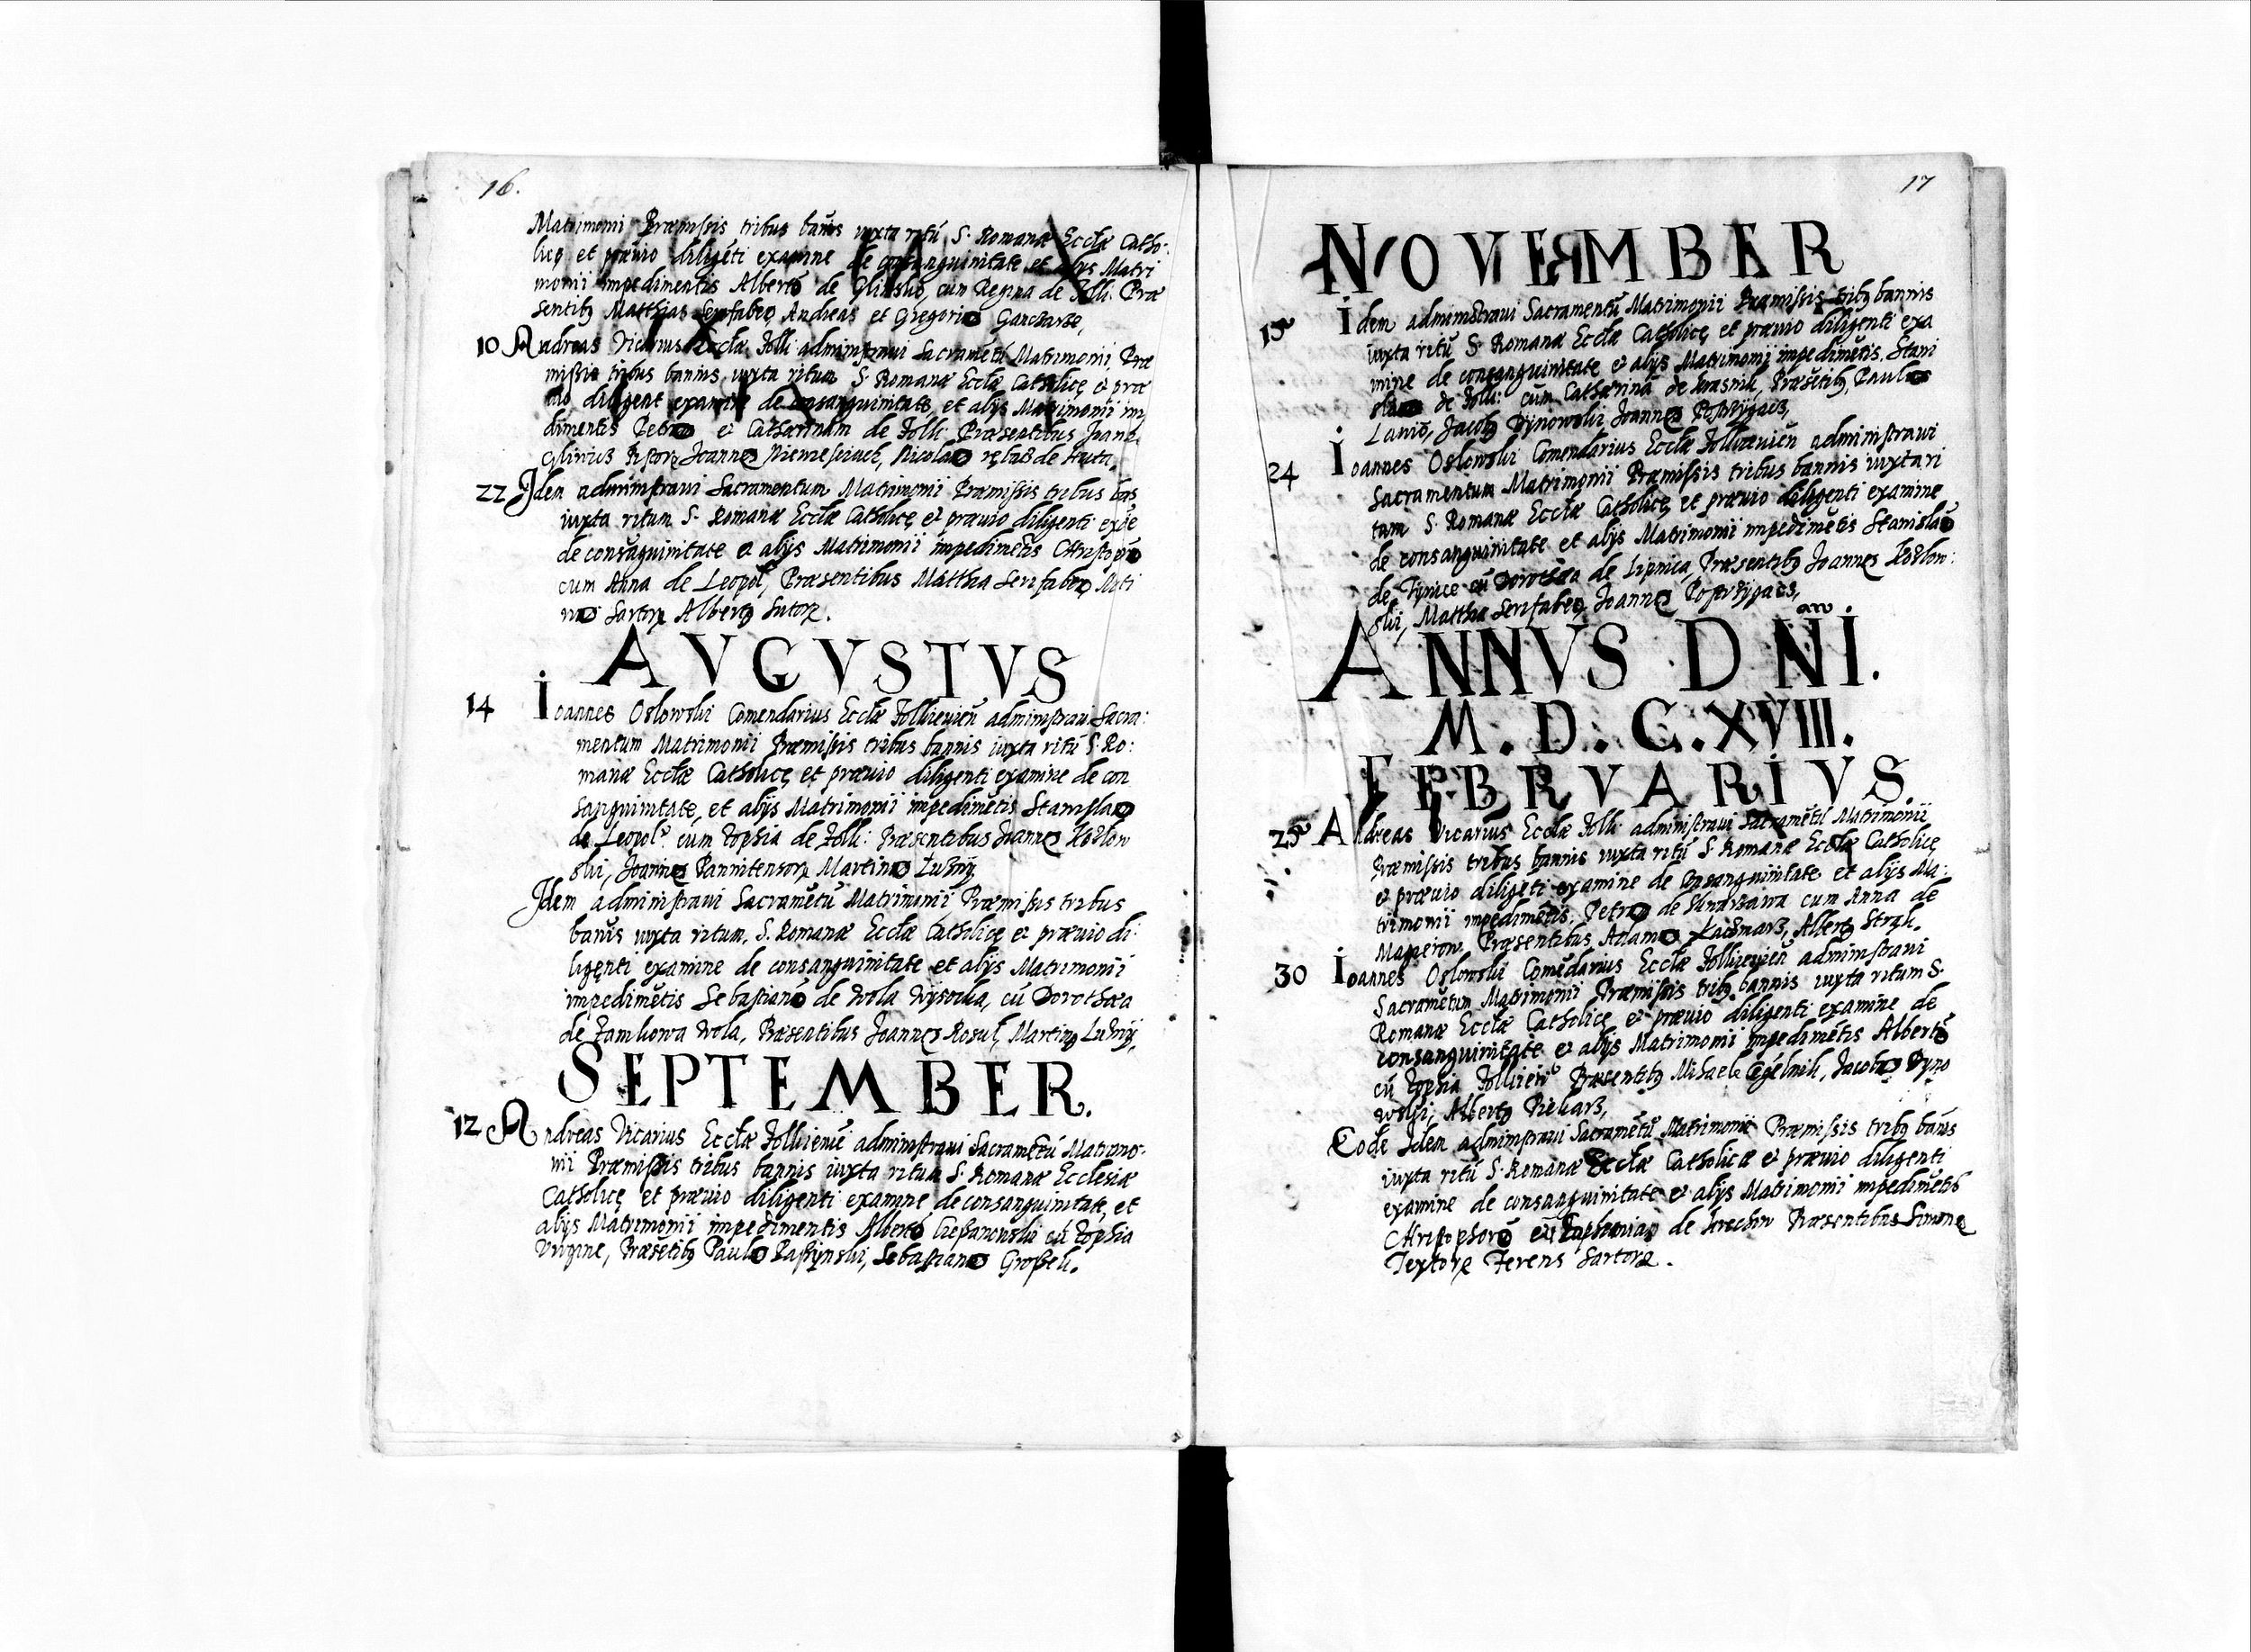 16.
Matrimonii Præmissis tribus banis iuxta ritū S. Romanæ Eccłæ Catho:
licę et prævio diligēti examine de consanguinitate et alijs Matri
monii impedimentis Albertō de Glinsko, cum Regina de Zolk: Præ
sentibʒ Matthias Serifabro, Andreas et Gregorio Gancharze,
10 Andreas Vicarius Eccłæ Zolk: administravi Sacramētū Matrimonii Præ
missis tribus bannis iuxta ritum S. Romanæ Eccłæ Catholicę et præ
vio diligent examine de consanguinitate, et alijs Matrimonii im
dimentis Petro et Catharinam de Zolk: Præsentibus
Joanne Nicolao de Huta,
22 Idem administravi Sacramentum Matrimonii Præmissis tribus bās
iuxta ritum S. Romanæ Eccłæ Catholicę et prævio diligenti exāe
de consāguinitate et alijs Matrimonii impedimētis Christopro
cum Anna de Leopol, Præsentibus Matthia Serifabro Marti
no Sartore Albertʒ Sutore.
AVGVSTVS
14 Ioannes Osłowski Comendarius Eccłæ Zolkievieñ administravi Sacra:
mentum Matrimonii Præmissis tribus bannis iuxta ritū S. Ro:
manæ Eccłæ Catholicę et prævio diligenti examine de con
sanguinitate, et alijs Matrimonii impedimētis Stanislao
de Leopol: cum Zophia de Zolk: Præsentibus Joanne Kozlow
ski, Joanne Pannitensore Martino Luzny,
Idem administravi Sacramētū Matrimonii Præmissis tribus
banis iuxta ritum, S. Romanæ Eccłæ Catholicę et prævio di:
ligenti examine de consanguinitate et alijs Matrimonii
impedimētis Sebastianō de Wola Wysocka, cū Dorothæa
de Zamkowa Wola, Præsentibus Joanne Rosuł, Martinʒ Luzny,
SEPTEMBER.
12 Andreas Vicarius Eccłæ Zolkievieñ administravi Sacramētū Matrimo:
nii Præmissis tribus bannis iuxta ritum S. Romanæ Ecclesiæ
Catholicę et prævio diligenti examine de consanguinitate, et
alijs Matrimonii impedimentis Albertō cū Zophia
Virgine, Præsētibʒ Paulo Sebastiano Groszek.
17
NOVEMBER
15 Idem administravi Sacramentū Matrimonii Præmissis tribʒ bannis
iuxta ritū S. Romanæ Eccłæ Catholicę et prævio diligenti exa
mine de consanguinitate et alijs Matrimonii impedimētis, Stani
slao de Zolk: cum Catharina de Krasnik, Præsētibʒ, Paulo
Lanio, Jacobʒ Dynowski Joanne Postrzygacz,
24 Ioannes Osłowski Comendarius Eccłæ Zolkievieñ administravi
Sacramentum Matrimonii Præmissis tribus bannis iuxta ri
tum S. Romanæ Eccłæ Catholicę et prævio diligenti examine
de consanguinitate et alijs Matrimonii impedimētis Stanislaō
de cū Dorothea de Lipnica, Præsentibʒ Joanne Kozłow:
ski, Matthia Serifabro, Joanne Postrzygacz,
ANNVS DNI.
M. D. C. XVIII.
FEBRVARIVS.
25 Andreas Vicarius Eccłæ Zolk: administravi Sacramētū Matrimonii
Præmissis tribus bannis iuxta ritū S. Romanæ Eccłæ Catholicę
et prævio diligēti examine de consanguinitate et alijs Ma:
trimonii impedimētis, Petro de cum Anna de
Magierow, Præsentibus Adamo Kaczmarz, Albertʒ Strak.
30 Ioannes Osłowski Comēdarius Eccłæ Zolkievieñ administravi
Sacramētum Matrimonii Præmissis tribʒ bannis iuxta ritum S.
Romanæ Eccłæ Catholicę et prævio diligenti examine de
consanguinitate et alijs Matrimonii impedimētis Albertō
cū Zophia Zolkiew: Præsentibʒ Michaele Cegelnik, Jacobo Dyno
wolski, Albertʒ Piekarz,
Eode Idem administravi Sacramētū Matrimonii Præmissis tribʒ banis
iuxta ritū S. Romanæ Eccłæ Catholicæ et prævio diligenti
examine de consanguinitate et alijs Matrimonii impedimētis
Christophorō cū de Præsentibus Simone
Textore Ferens Sartore.